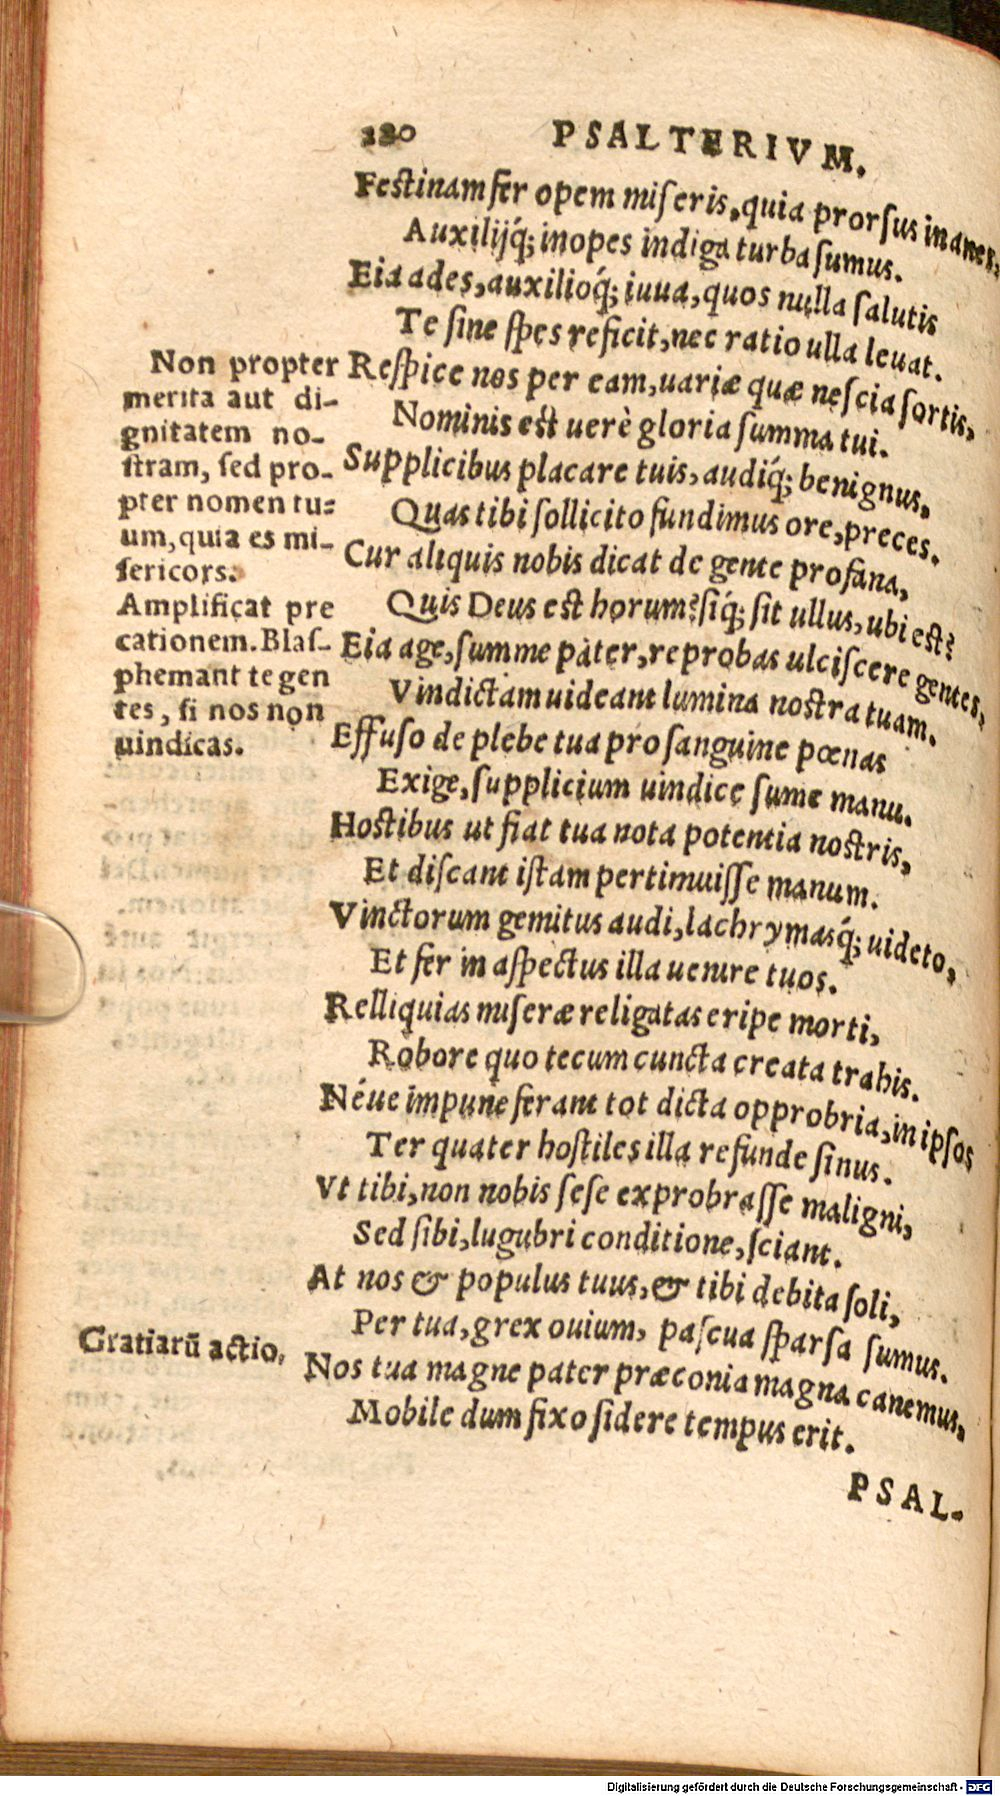 220 PSALTERIVM.
Festinam fer opem miſeris, quia prorſus inanes,
Auxilijq́; inopes indiga turba ſumus.
Eia ades, auxilioq́; iuua, quos nulla ſalutis
Te ſine ſpes reficit, nec ratio ulla leuat.
Reſpice nos per eam, uariæ quæ neſcia ſortis,
Nominis est uerè gloria ſumma tui.
Supplicibus placare tuis, audiq́; benignus,
Quas tibi ſollicito fundimus ore, preces.
Cur aliquis nobis dicat de gente profana,
Quis Deus est horum? ſiq́; ſit ullus, ubi est?
Eia age, ſumme pater, reprobas ulciſcere gentes,
Vindictam uideant lumina nostra tuam.
Effuſo de plebe tua pro ſanguine pœnas
Exige, ſupplicium uindice ſume manu.
Hostibus ut fiat tua nota potentia nostris,
Et diſcant iſtam pertimuiſſe manum.
Vinctorum gemitus audi, lachrymasq́; uideto,
Et fer in aſpectus illa uenire tuos.
Relliquias miſeræ religatas eripe morti,
Robore quo tecum cuncta creata trahis.
Néue impune ferant tot dicta opprobria, in ipſos
Ter quater hoſtiles illa refunde ſinus.
Vt tibi, non nobis ſeſe exprobraſſe maligni,
Sed ſibi, lugubri conditione, ſciant.
At nos & populus tuus, & tibi debita ſoli,
Per tua, grex ouium, paſcua ſparſa ſumus.
Nos tua magne pater præconia magna canemus,
Mobile dum fixo ſidere tempus erit.
PSAL-
Non propter
merita aut di-
gnitatem no-
ſtram, ſed pro-
pter nomen tu-
um, quia es mi-
ſericors.
Amplificat pre
cationem. Blaſ-
phemant te gen
tes, ſi nos non
uindicas.
Gratiarū actio.
Digitalisierung gefördert durch die Deutsche Forschungsgemeinschaft - DFG